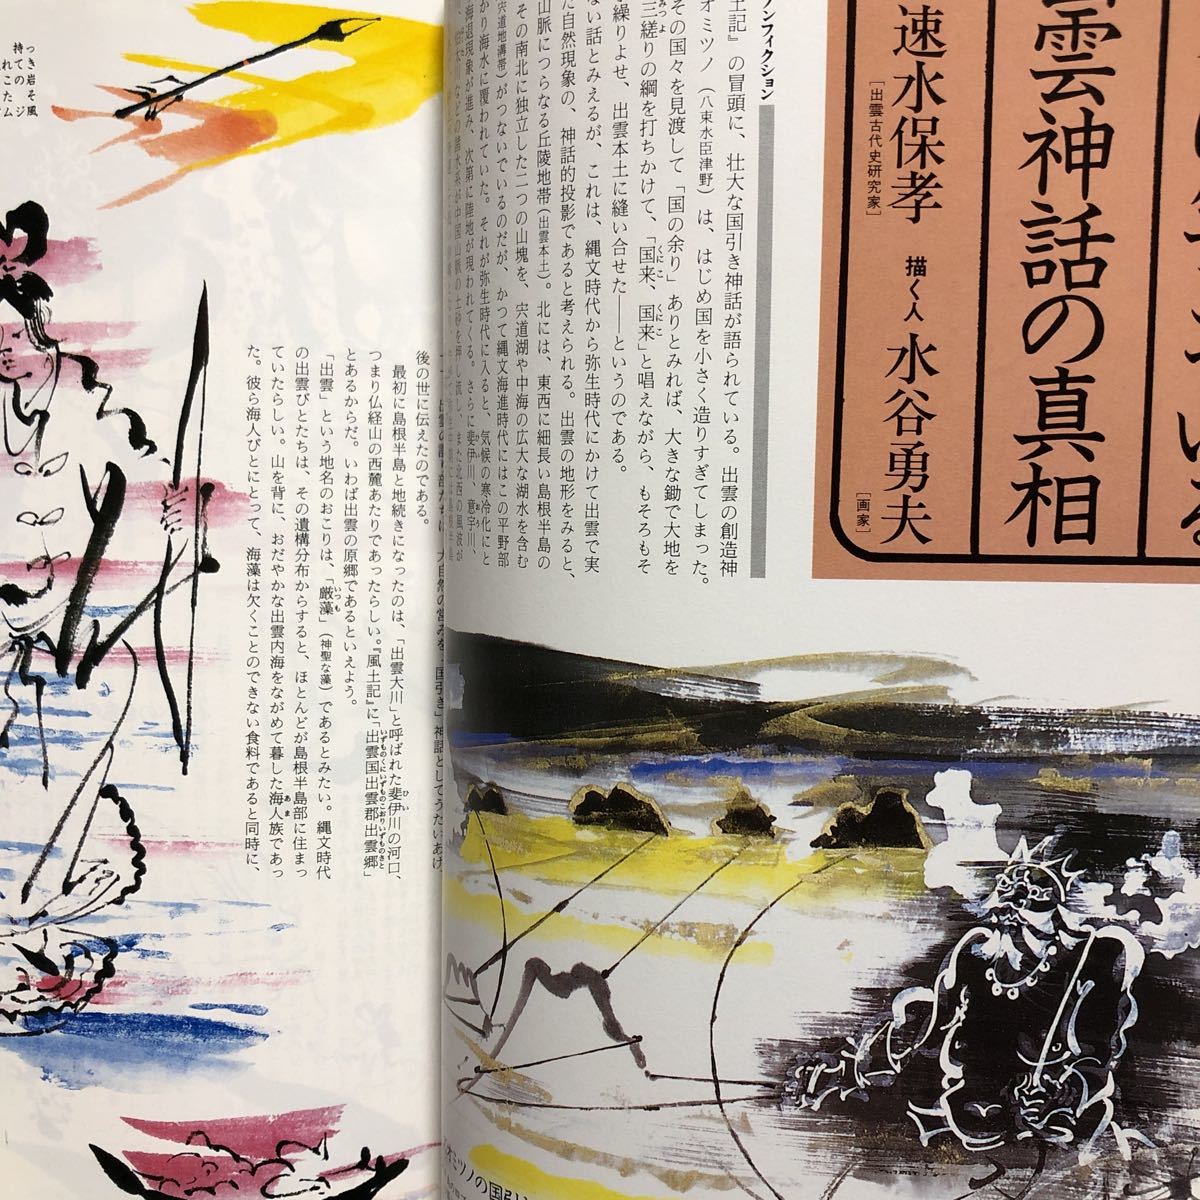 雲神話の真相
速水保孝
［出雲古代史研究家］
描く人 水谷勇夫
［画家］
ンフィクション
土記』の冒頭に、壮大な国引き神話が語られている。出雲の創造神
オミツノ（八束水臣津野）は、はじめ国を小さく造りすぎてしまった。
その国々を見渡して「国の余り」ありとみれば、大きな鋤で大地を
三縒りの綱を打ちかけて、「国来、国来」と唱えながら、もそろもそ
繰りよせ、出雲本土に縫い合せた――というのである。
ない話とみえるが、これは、縄文時代から弥生時代にかけて出雲で実
た自然現象の、神話的投影であると考えられる。出雲の地形をみると、
山脈につらなる丘陵地帯（出雲本土）。北には、東西に細長い島根半島の
その南北に独立した二つの山塊を、宍道湖や中海の広大な湖水を含む
宍道地溝帯）がつないでいるのだが、かつて縄文海進時代にはこの平野部
かり海水に覆われていた。それが弥生時代に入ると、気候の寒冷化にと
海退現象が進み、次第に陸地が現われてくる。さらに斐伊川、意宇川、
などの諸水系が中国山脈の土砂を押し流し、また北西の風波が
大自然の営みを「国引き」神話としてうたいあげ、
後の世に伝えたのである。
最初に島根半島と地続きになったのは、「出雲大川」と呼ばれた斐伊川の河口、
つまり仏経山の西麓あたりであったらしい。『風土記』に「出雲国出雲郡出雲郷」
とあるからだ。いわば出雲の原郷であるといえよう。
「出雲」という地名のおこりは、「厳藻」（神聖な藻）であるとみたい。縄文時代
の出雲びとたちは、その遺構分布からすると、ほとんどが島根半島部に住まっ
ていたらしい。山を背に、おだやかな出雲内海をながめて暮した海人族であっ
た。彼ら海人びとにとって、海藻は欠くことのできない食料であると同時に、
持っ
れてき
この岩
たそ
ムジ風
オミツノの国引き